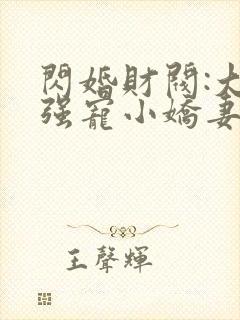 閃婚財閥:大
强寵小嬌妻
王聲輝